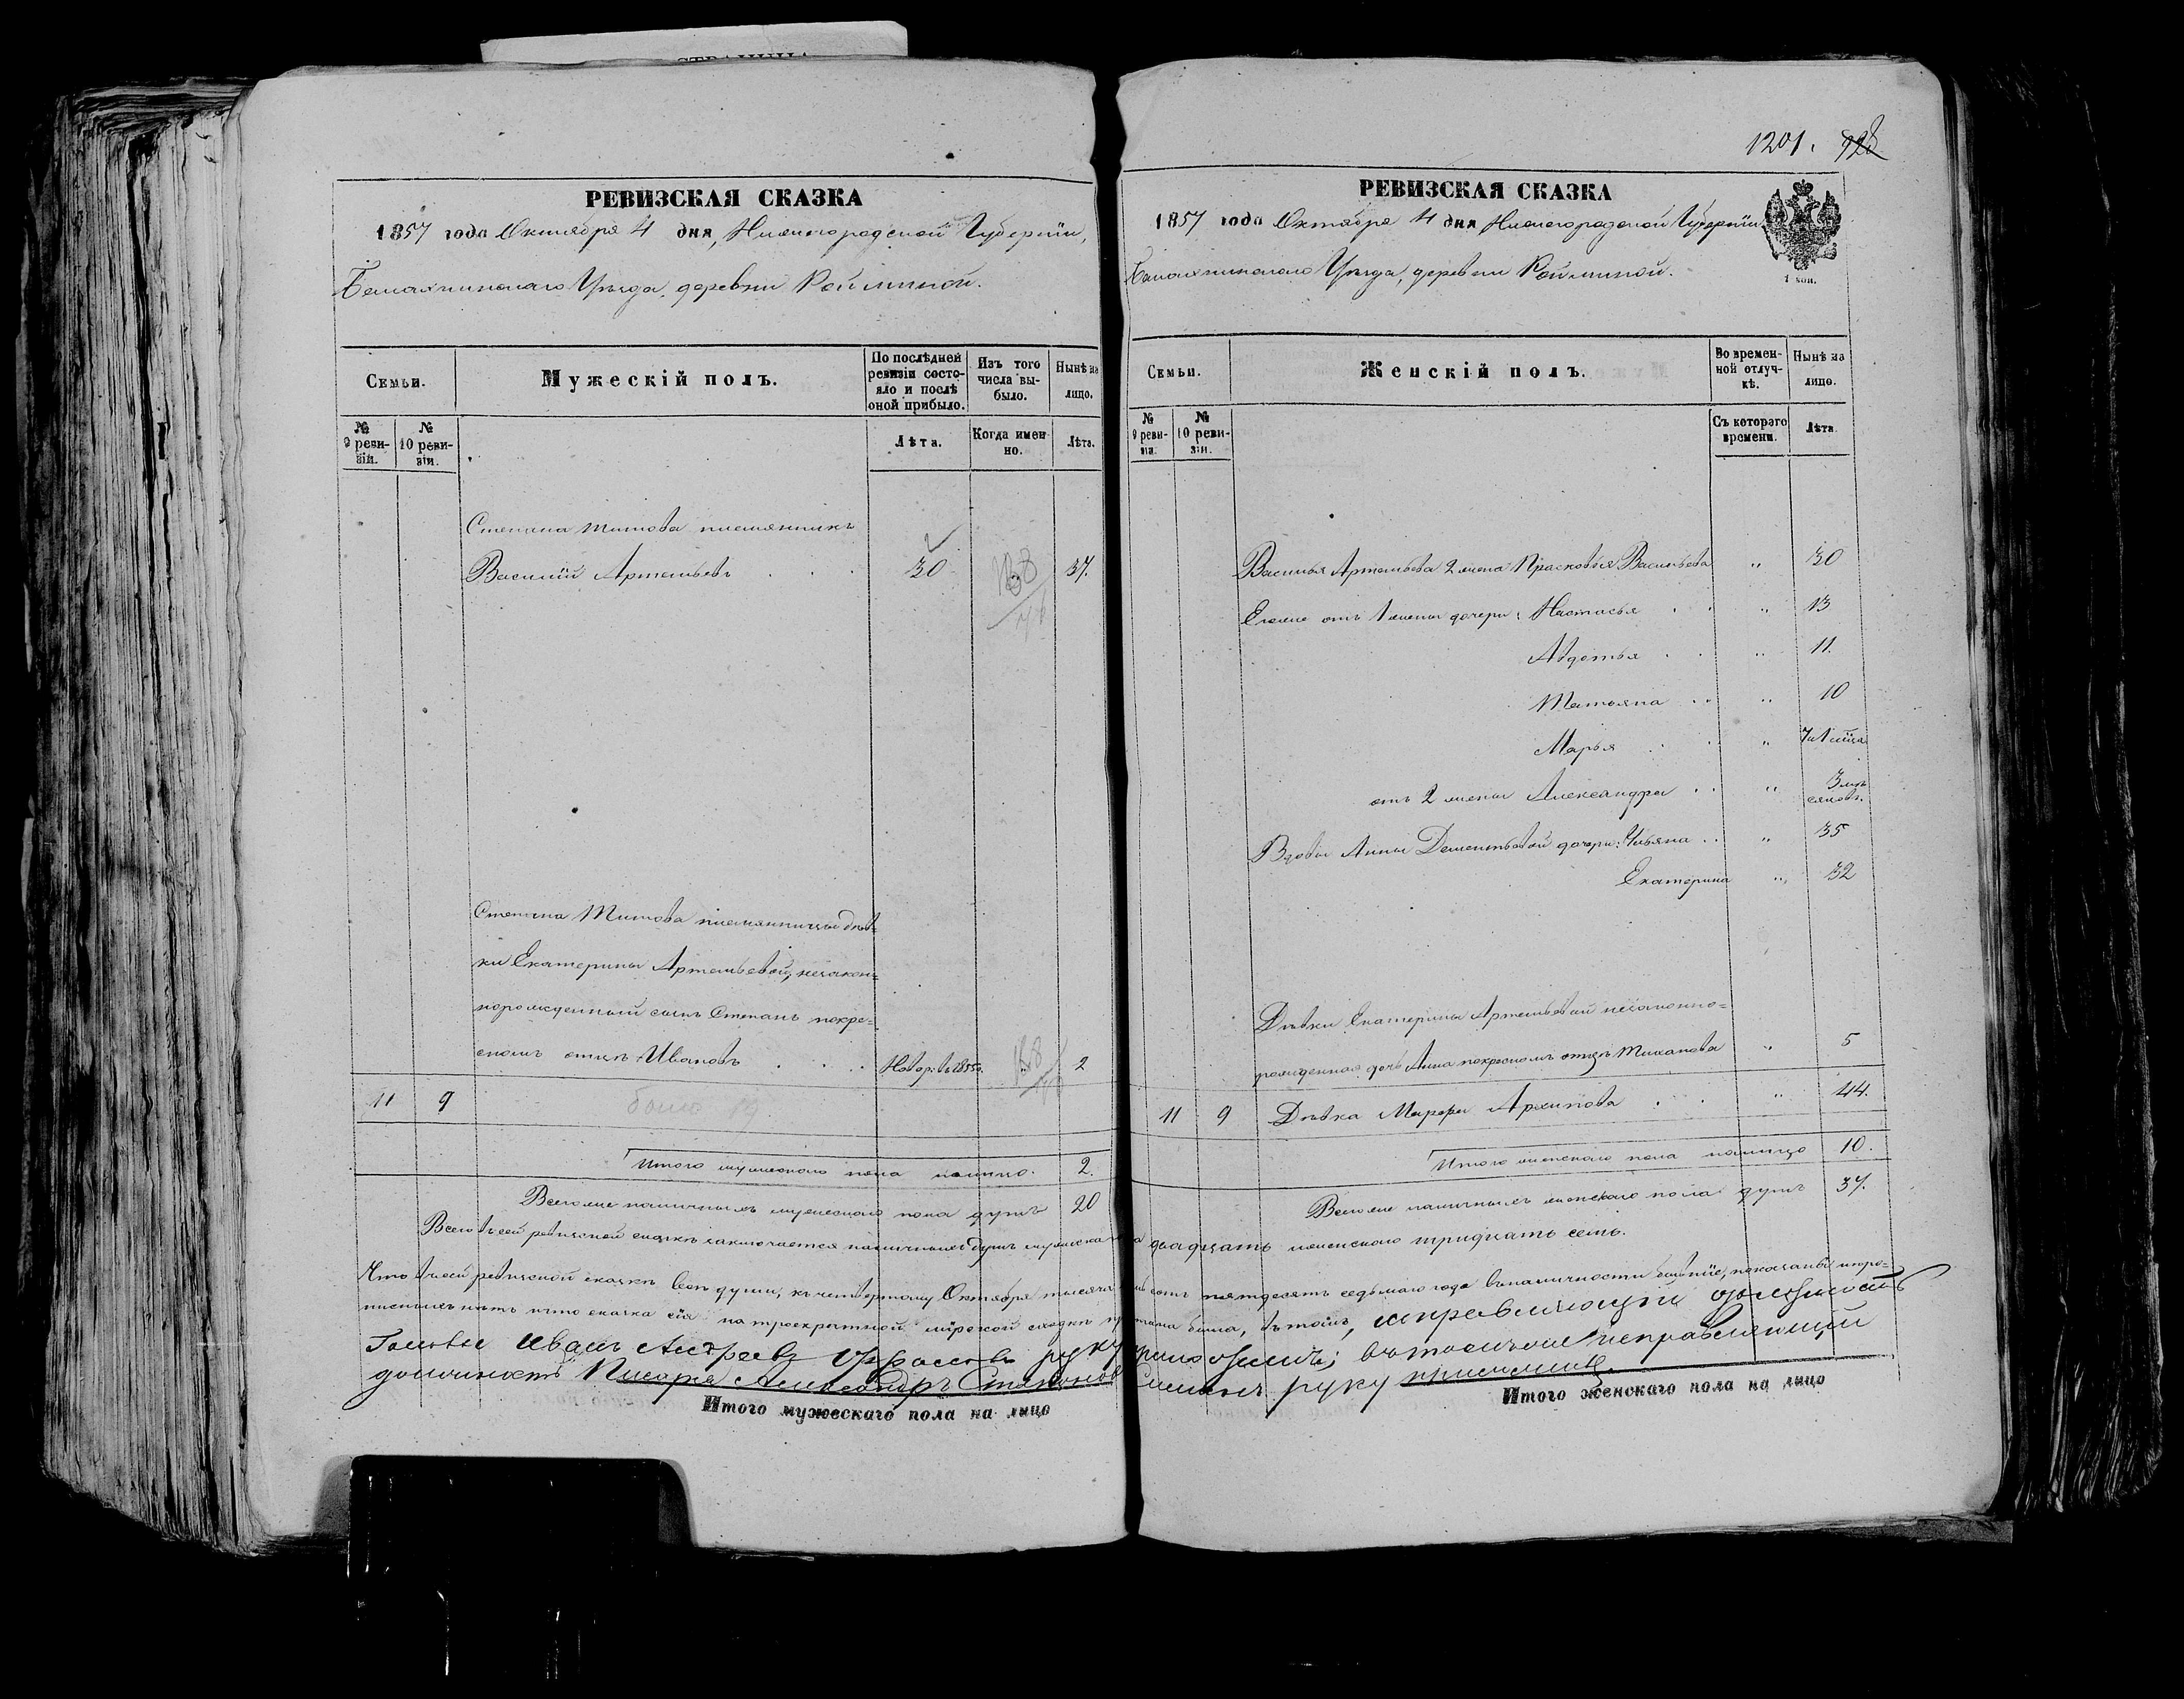 1201. 928
РЕВИЗСКАЯ СКАЗКА
1857 года Октября 4 дня, Нижегородской Губерніи,
Балахнинскаго Уѣзда, деревни Рой миной.
Семьи.
Мужескій полъ.
По послѣдней ревизіи состояло и послѣ оной прибыло.
Изъ того числа выбыло.
Нынѣ на лицо.
№ 9 ревизіи.
№ 10 ревизіи.
Лѣта.
Когда именно.
Лѣта.
Степана Титова племянникъ
Василій Артемьевъ . . . 30 „ 37.
Степана Титова племянницы дѣв-
ки Екатерины Артемьевой, незакон-
норожденный сынъ Степанъ покре-
сномъ отцѣ Ивановъ . . . Новор: въ 1855г. „ 2
11 9
Итого мужескаго пола налицо. 2.
Всего же наличныхъ мужескаго пола душъ 20
РЕВИЗСКАЯ СКАЗКА
1857 года Октября 4 дня Нижегородской Губерніи
Балахнинскаго Уѣзда, деревни Рой миной.
1 коп.
Семьи.
Женскій полъ.
Во временной отлучкѣ.
Нынѣ на лицо.
№ 9 ревизіи.
№ 10 ревизіи.
Съ котораго времени.
Лѣта.
Василья Артемьева 2 жена Прасковья Васильева „ 30
Егоже отъ 1 жены дочери: Настасья . . „ 13
Авдотья . . „ 11.
Татьяна . . „ 10
Марья . . „
отъ 2 жены Александра . . „ 3 мѣсяцовъ.
Вдовы Анны Дементьевой дочери: Ульяна . . „ 35
Екатерина „ 32
Дѣвки Екатерины Артемьевой незаконно-
рожденная дочь Анна покресномъ отцѣ „ 5
11 9 Дѣвка Марфа Архипова . . „ 44.
Итого женскаго пола налицо 10.
Всего же наличныхъ женскаго пола душъ 37.
Всего въ сей ревизской сказкѣ заключается наличныхъ душъ мужеска двадцать женскаго тридцать семь.
Что въ сей ревизской сказкѣ всѣ души, къ четвертому Октября тысяча сотъ пятдесятъ седьмаго года въ наличности бывшіе, показаны и про-
писныхъ нѣтъ и что сказка сія на троекратной мірской сходкѣ читана была, въ томъ, исправляющій должность
Головы Иванъ Андреевъ руку приложилъ; въ томъ же исправляющій
должность Писаря Александръ руку приложилъ.
Итого мужескаго пола на лицо
Итого женскаго пола на лицо